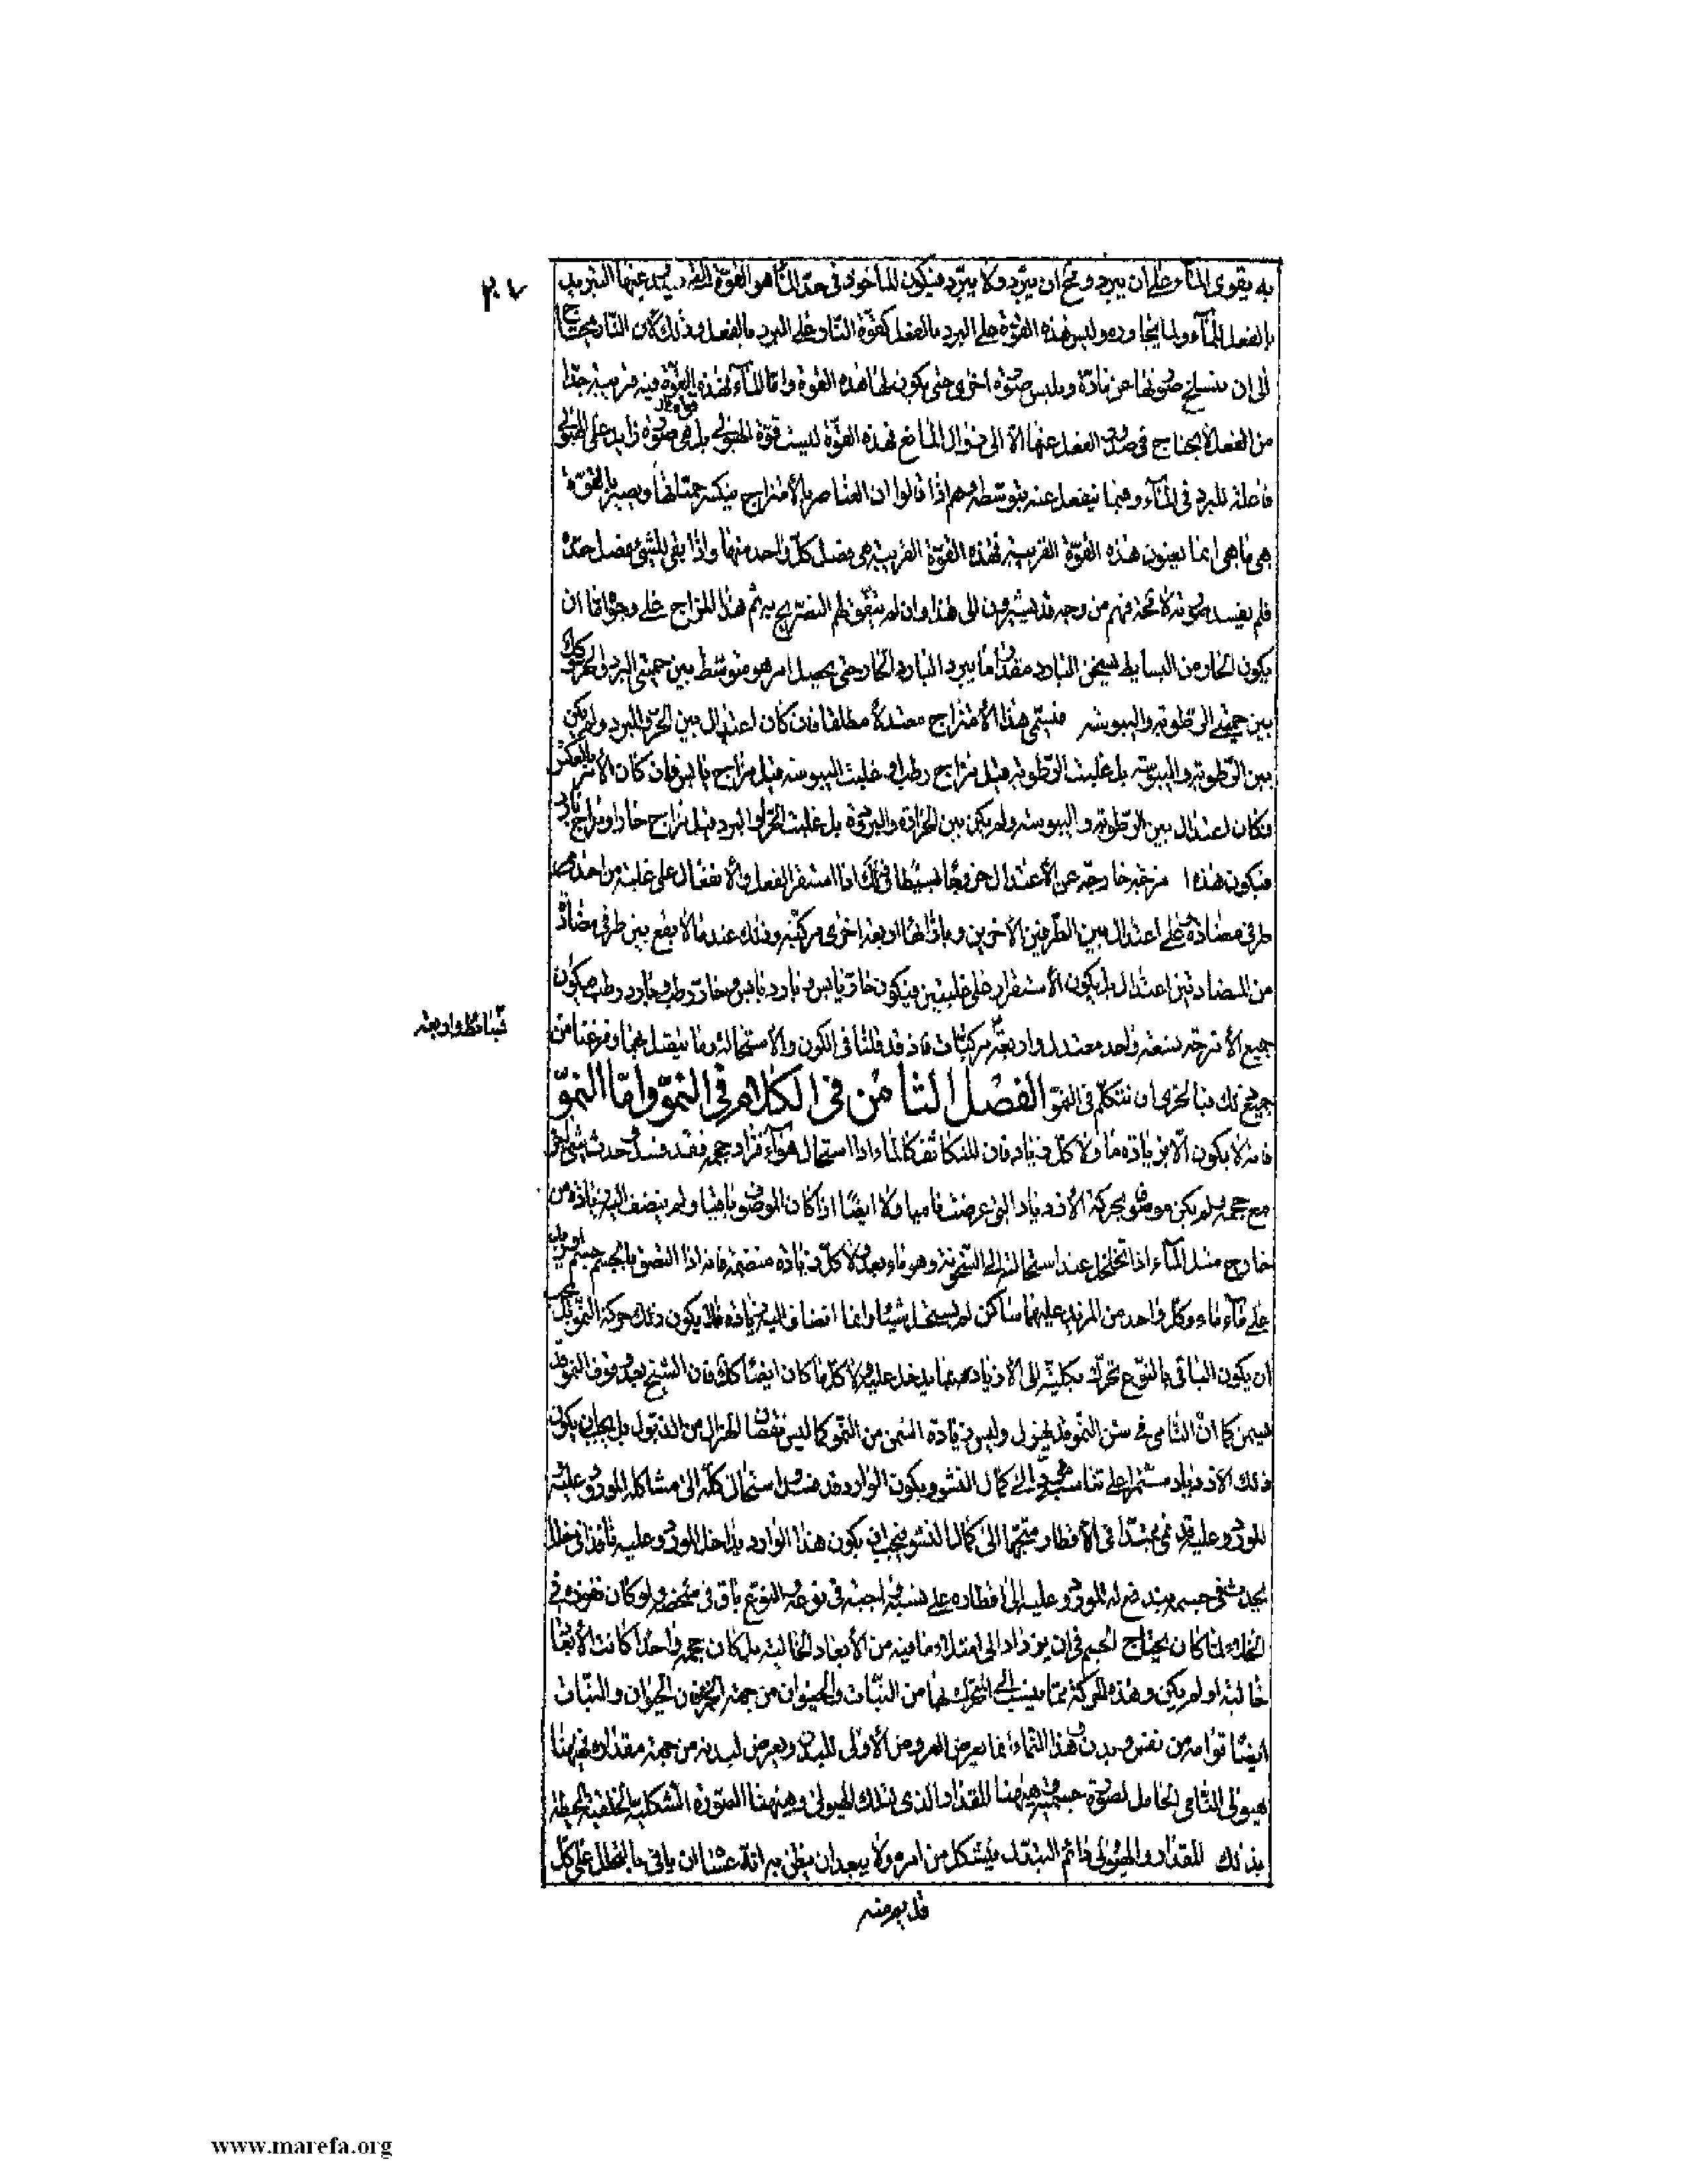 ٢٠٧
به يقوى الماء على أن يبرد وصح ان يبرد ولا يبرد فيكون المأخوذ فى حد الماء هو القوة القريبة عنها التبريد
بالفعل للماء ولما يجاوره وليس هذه القوة على البرد بالفعل كقوة النار على البرد بالفعل وذلك لان النار تحتاج
الى ان ينسلخ صورتها عن مادة ويلبس صورة اخرى حتى يكون لها هذه القوة واما الماء لهذه القوة فيه قريبة جدا
من الفعل لا يحتاج فى صدور الفعل عنها الا الى زوال المانع فهذه القوة ليست قوة الهيولى بل هى صورة زايدة على الهيولى
فاعلة للبرد فى الماء وفيما ينفعل عنه بتوسطه وهم اذا قالوا ان العناصر بالامتزاج ينكسر حميتاتها ويصير بالقوة
هى ما هى انما يعنون هذه القوة القريبة فهذه القوة القريبة هى فصل كل واحد منها واذا بقى للشئ فصل حده
فلم يفسد صورته لا محة فهم من وجه قد يشيرون الى هذا وان لم يتفق لهم التصريح به ثم هذا المزاج على وجوه اما ان
يكون الحار من البسايط يسخن البارد مقدار ما يبرد البارد الحار حتى يحصل امر هو متوسط بين حميتى البرد والحر وكك
بين حميتى الرطوبة واليبوسة فيسمى هذا الامتزاج معتدلا مطلقا فان كان اعتدال بين الحر والبرد ولم يكن
بين الرطوبة واليبوسة بل غلبت الرطوبة قيل مزاج رطب او غلبت اليبوسة قيل مزاج يابس فان كان الامر بالعكس
فكان اعتدال بين الرطوبة واليبوسة ولم يكن بين الحرارة والبرودة بل غلبت الحر او البرد قيل مزاج حار او مزاج بارد
فيكون هذه امزجة خارجة عن الاعتدال خروجا بسيطا وذلك اذا استقر الفعل والانفعال على غلبة من احد
طرفى مضادة على اعتدال بين الطرفين الاخرين وبازائها اربعة اخرى مركبة وذلك عند ما لا يقع بين طرفى مضادة
من المضادتين اعتدال بل يكون الاستقرار على غلبتين فيكون حار يابس وبارد يابس وحار رطب وبارد رطب فيكون
جميع الامزجة تسعة واحد معتدل واربعة مركبات فاذ قد قلنا فى الكون والاستحالة وما يتصل بهما وفرغنا من
بسائط واربعة
جميع ذلك فبالحرى ان نتكلم فى النمو الفصل الثامن فى الكلام فى النمو واما النمو
فانه لا يكون الا بزيادة ما ولا كل زيادة فان المتكاثف كالماء اذا استحال هواء فزاد حجمه فقد فسد وحدث شئ اخر
مع حجمه لم يكن موضوع بحركة الازدياد التى عرضت ناميا ولا ايضا اذا كان الموضوع باقيا ولم ينضف اليه زيادة من
خارج مثل الماء اذا تخلخل عند استحالته الى السخونة وهو ماء بعد ولا كل زيادة منضمة فانه اذا التصق بالجسم جسم
على ماء ماء وكل واحد من المزيد عليهما ساكن لم يستحل شيئا وانما انضاف اليه زيادة فلا يكون ذلك حركة النمو بل يجب
ان يكون الباقى بالنوع تحرك بكليته الى الازدياد بما يدخل عليه ولا كل ما كان ايضا كك فان الشيخ بعد وقوف النمو قد
يسمن كما ان النامى فى سن النمو قد يهزل وليس زيادة السمن من النمو كما ليس نقصان الهزال من الذبول بل يجب ان يكون
ذلك الازدياد مستمرا على تناسب مؤد الى كمال النشو ويكون الوارد قد فسد استحال كله الى مشاكلة المورود عليه
المورود عليه قد نمى ممتدا فى الاقطار متجها الى كمال النشو يجب ان يكون هذا الوارد يداخل المورود عليه نافذا فى خلل
يحدث فى جسمه يندفع له المورود عليه الى اقطاره على نسبة واجبة فى نوعه والنوع باق فى شخصه ولو كان نفوذه فى
الخلاء لما كان يحتاج الجسم فى ان يزداد الى امتلاء ما فيه من الابعاد الخالية بل كان حجمه واحدا كانت الابعاد
خالية او لم يكن وهذه الحركة مما ينسب الى المتحرك لها من النبات والحيوان من جهة اخرى فان الحيوان والنبات
ايضا قوامه من نفس وبدن وهذا النماء انما يعرض العروض الاولى للبدن ويعرض لبدنه من جهة مقداره فههنا
هيولى النامى الحامل لصورة جسمية وههنا المقدار الذى لتلك الهيولى وههنا الصورة الشكلية الخلقية المحيطة
بذلك المقدار والهيولى دائم التبدل يتشكل من امره ولا يبعد ان يظن به انه عشنا ان ياتى بالتحلل على كل